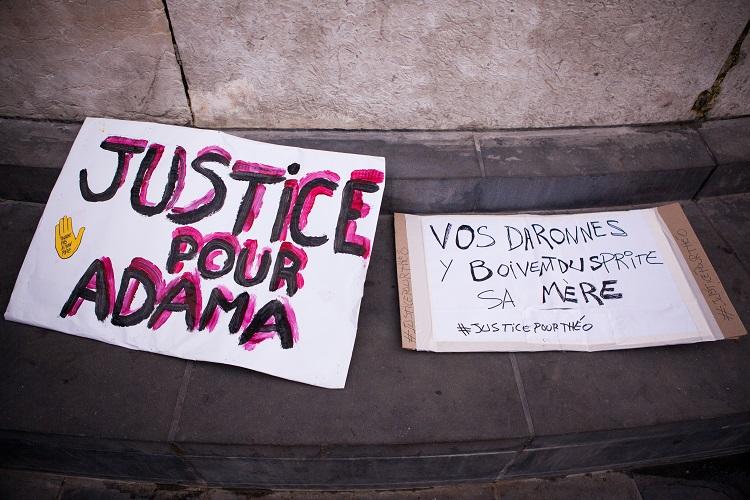 JUSTICE
POUR
ADAMA
VOS DARONNES
Y BOIVENT DU SPRITE
SA MÈRE
#JUSTICEPOURTHÉO
#JUSTICEPOURTHÉO
#JUSTICEPOURTHÉO